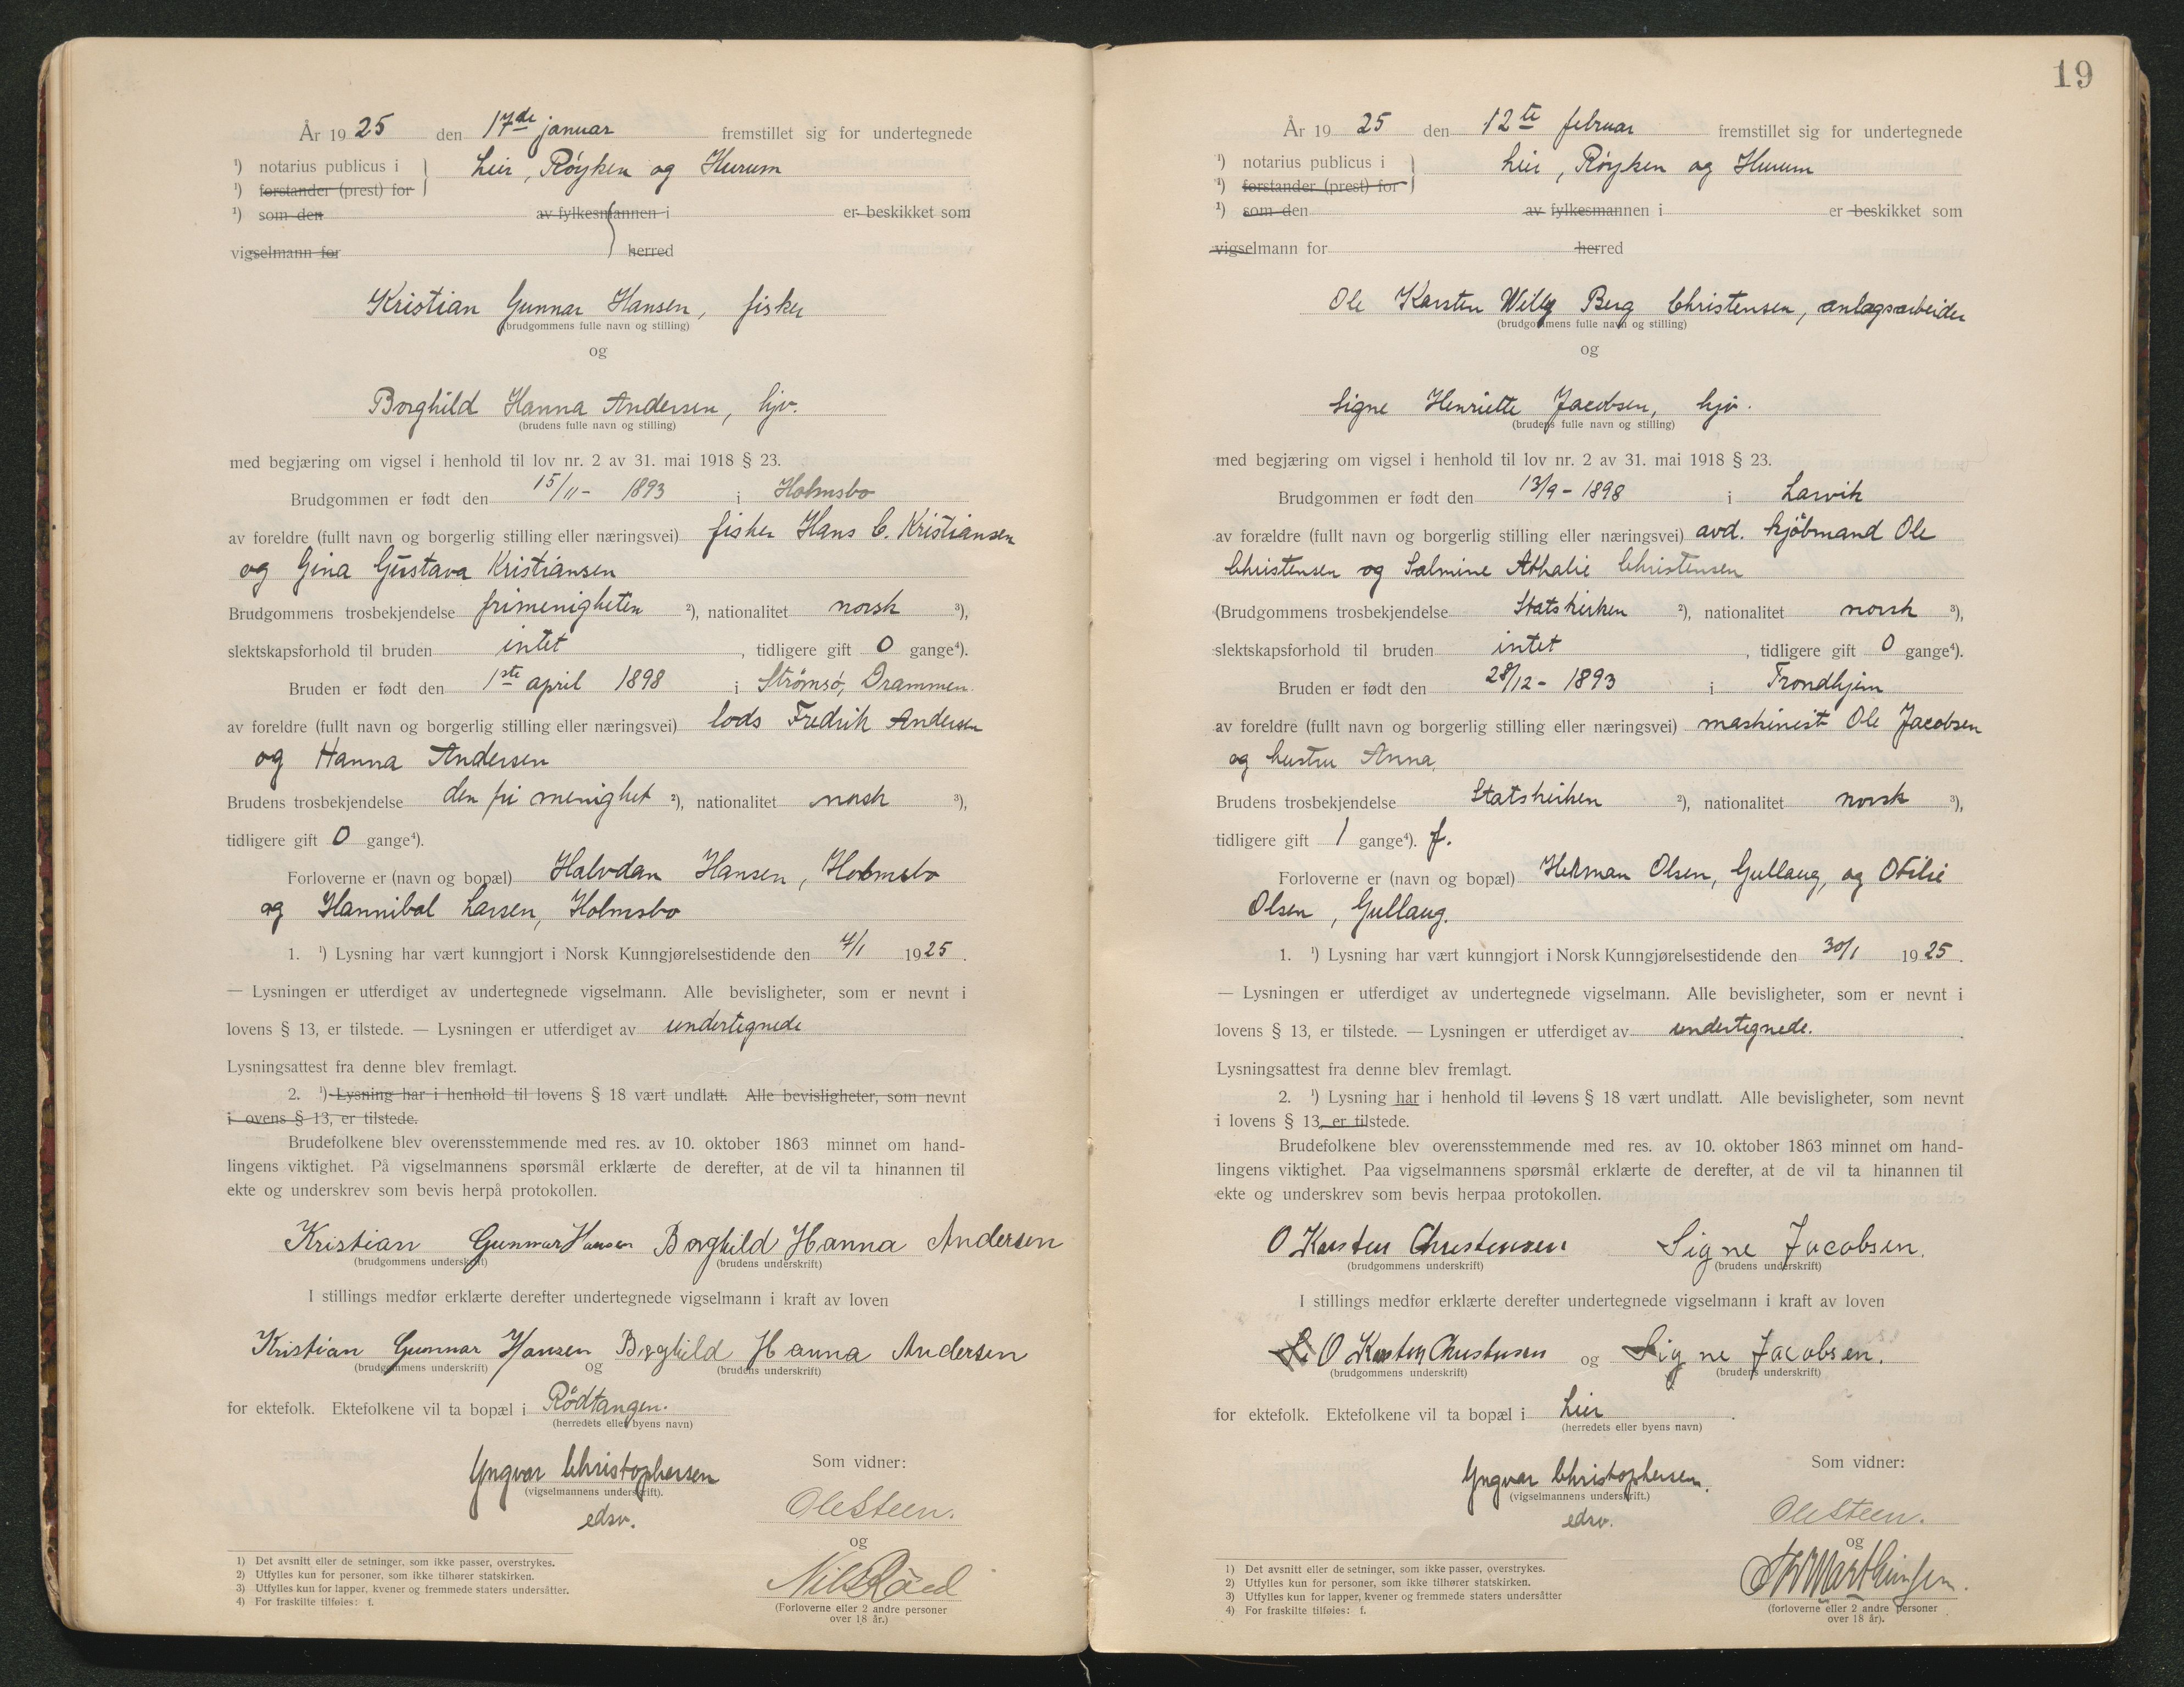 År 1925 den 17de januar fremstillet sig for undertegnede
¹) notarius publicus i } Lier, Røyken og Hurum
¹) forstander (prest) for
¹) som den av fylkesmannen i er beskikket som
vigselmann for herred
Kristian Gunnar Hansen, fisker
(brudgommens fulle navn og stilling)
og
Borghild Hanna Andersen, hjv.
(brudens fulle navn og stilling)
med begjæring om vigsel i henhold til lov nr. 2 av 31. mai 1918 § 23.
Brudgommen er født den 15/11 - 1893 i Holmsbo
av foreldre (fullt navn og borgerlig stilling eller næringsvei) fisker Hans C. Kristiansen
og Gina Gustava Kristiansen
Brudgommens trosbekjendelse frimenigheten ²), nationalitet norsk ³),
slektskapsforhold til bruden intet, tidligere gift 0 gange⁴).
Bruden er født den 1ste april 1898 i Strømsø, Drammen
av foreldre (fullt navn og borgerlig stilling eller næringsvei) lods Fredrik Andersen
og Hanna Andersen
Brudens trosbekjendelse den fri menighet ²), nationalitet norsk ³),
tidligere gift 0 gange⁴).
Forloverne er (navn og bopæl) Halvdan Hansen, Holmsbo
og Hannibal Larsen, Holmsbo
1. ¹) Lysning har vært kunngjort i Norsk Kunngjørelsestidende den 7/1 1925.
— Lysningen er utferdiget av undertegnede vigselmann. Alle bevisligheter, som er nevnt i
lovens § 13, er tilstede. — Lysningen er utferdiget av undertegnede
Lysningsattest fra denne blev fremlagt.
2. ¹) Lysning har i henhold til lovens § 18 vært undlatt. Alle bevisligheter, som nevnt
i ovens § 13, er tilstede.
Brudefolkene blev overensstemmende med res. av 10. oktober 1863 minnet om hand-
lingens viktighet. På vigselmannens spørsmål erklærte de derefter, at de vil ta hinannen til
ekte og underskrev som bevis herpå protokollen.
Kristian Gunnar Hansen Borghild Hanna Andersen
(brudgommens underskrift) (brudens underskrift)
I stillings medfør erklærte derefter undertegnede vigselmann i kraft av loven
Kristian Gunnar Hansen Borghild Hanna Andersen
(brudgommens underskrift) og (brudens underskrift)
for ektefolk. Ektefolkene vil ta bopæl i Rødtangen.
(herredets eller byens navn)
Yngvar Christophersen
(vigselmannens underskrift).
edsv.
Som vidner:
Ole Steen.
og
Nils Röed
(Forloverne eller 2 andre personer
over 18 år.)
1) Det avsnitt eller de setninger, som ikke passer, overstrykes.
2) Utfylles kun for personer, som ikke tilhører statskirken.
3) Utfylles kun for lapper, kvener og fremmede staters undersåtter.
4) For fraskilte tilføies: f.
19
År 1925 den 12te februar fremstillet sig for undertegnede
¹) notarius publicus i } Lier, Røyken og Hurum
¹) forstander (prest) for
¹) som den av fylkesmannen i er beskikket som
vigselmann for herred
Ole Karsten Willy Berg Christensen, anlægsarbeider
(brudgommens fulle navn og stilling)
og
Signe Henriette Jacobsen, hjv.
(brudens fulle navn og stilling)
med begjæring om vigsel i henhold til lov nr. 2 av 31. mai 1918 § 23.
Brudgommen er født den 13/9 - 1898 i Larvik
av forældre (fullt navn og borgerlig stilling eller næringsvei) avd. kjøbmand Ole
Christensen og Salmine Athalie Christensen
(Brudgommens trosbekjendelse Statskirken ²), nationalitet norsk ³),
slektskapsforhold til bruden intet, tidligere gift 0 gange⁴).
Bruden er født den 28/12 - 1893 i Trondhjem
av foreldre (fullt navn og borgerlig stilling eller næringsvei) maskinist Ole Jacobsen
og hustru Anna.
Brudens trosbekjendelse Statskirken ²), nationalitet norsk ³),
tidligere gift 1 gange⁴). f.
Forloverne er (navn og bopæl) Herman Olsen, Gullaug, og Otilie
Olsen, Gullaug.
1. ¹) Lysning har vært kunngjort i Norsk Kunngjørelsestidende den 30/1 1925.
— Lysningen er utferdiget av undertegnede vigselmann. Alle bevisligheter, som er nevnt i
lovens § 13, er tilstede. — Lysningen er utferdiget av undertegnede.
Lysningsattest fra denne blev fremlagt.
2. ¹) Lysning har i henhold til lovens § 18 vært undlatt. Alle bevisligheter, som nevnt
i lovens § 13, er tilstede.
Brudefolkene blev overensstemmende med res. av 10. oktober 1863 minnet om hand-
lingens viktighet. Paa vigselmannens spørsmål erklærte de derefter, at de vil ta hinannen til
ekte og underskrev som bevis herpaa protokollen.
O Karsten Christensen Signe Jacobsen.
(brudgommens underskrift) (brudens underskrift)
I stillings medfør erklærte derefter undertegnede vigselmann i kraft av loven
O Karsten Christensen og Signe Jacobsen.
(brudgommens underskrift) (brudens underskrift)
for ektefolk. Ektefolkene vil ta bopæl i Lier
(herredets eller byens navn)
Yngvar Christophersen.
(vigselmannens underskrift.)
edsv.
Som vidner:
Ole Steen.
og
(forloverne eller 2 andre personer
over 18 år).
1) Det avsnitt eller de setninger, som ikke passer, overstrykes.
2) Utfylles kun for personer, som ikke tilhører statskirken.
3) Utfylles kun for lapper, kvener og fremmede staters undersåtter
4) For fraskilte tilføies: f.